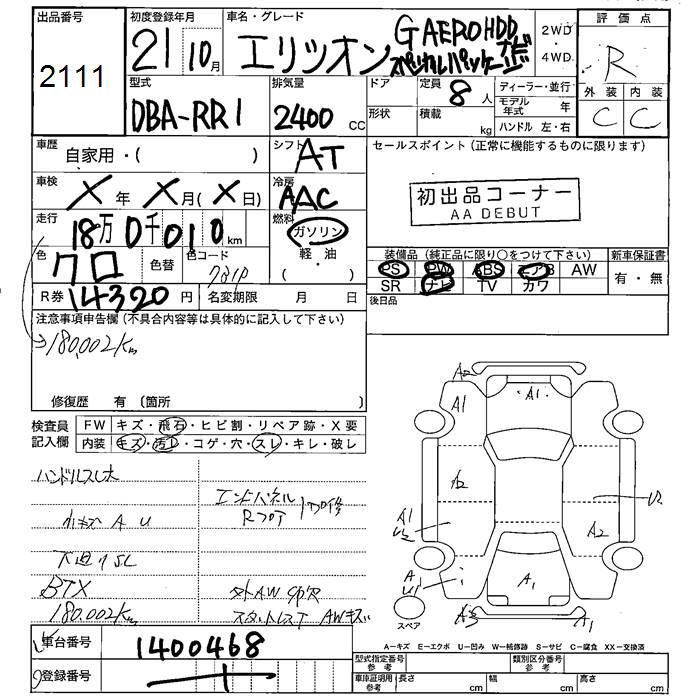 出品番号
2111
初度登録年月
21 10月
車名・グレード
エリツオン G AERO HDDナビ
スペシャルパッケージ
2WD
・
4WD
評価点
R
外装 内装
C C
型式
DBA-RR1
排気量
2400 CC
ドア
形状
定員
8人
積載
kg
ディーラー・並行
モデル年式 年
ハンドル 左・右
車歴
自家用・( )
シフト
AT
車検
X年 X月(X日)
冷房
AAC
走行
18万0千010km
燃料
ガソリン
・
軽・油
( )
セールスポイント (正常に機能するものに限ります)
初出品コーナー
AA DEBUT
色
クロ
色替
色コード
装備品 (純正品に限り○をつけて下さい)
PS PW ABS エアB AW
SR ナビ TV カワ
新車保証書
有・無
R券 14320円
名変期限 月 日
後日品
注意事項申告欄 (不具合内容等は具体的に記入して下さい)
180,002Km
修復歴 有 (箇所 )
検査員
記入欄
FW キズ・飛石・ヒビ割・リペア跡・X要
内装 キズ・汚レ・コゲ・穴・スレ・キレ・破レ
ハンドルスレ大
小キズ A U
下廻りSC
BTX
180.002Km
エンドパネル
Rフロア
スタットレスT AWキズ
A2
A1
A1
A2
A1
A
U1
A1
A2
U2
A1
スペア
A-キズ E-エクボ U-凹み W-補修跡 S-サビ C-腐食 XX-交換済
車台番号
1400468
登録番号
型式指定番号
参考
類別区分番号
参考
車庫証明用
参考
長さ cm
幅 cm
高さ cm